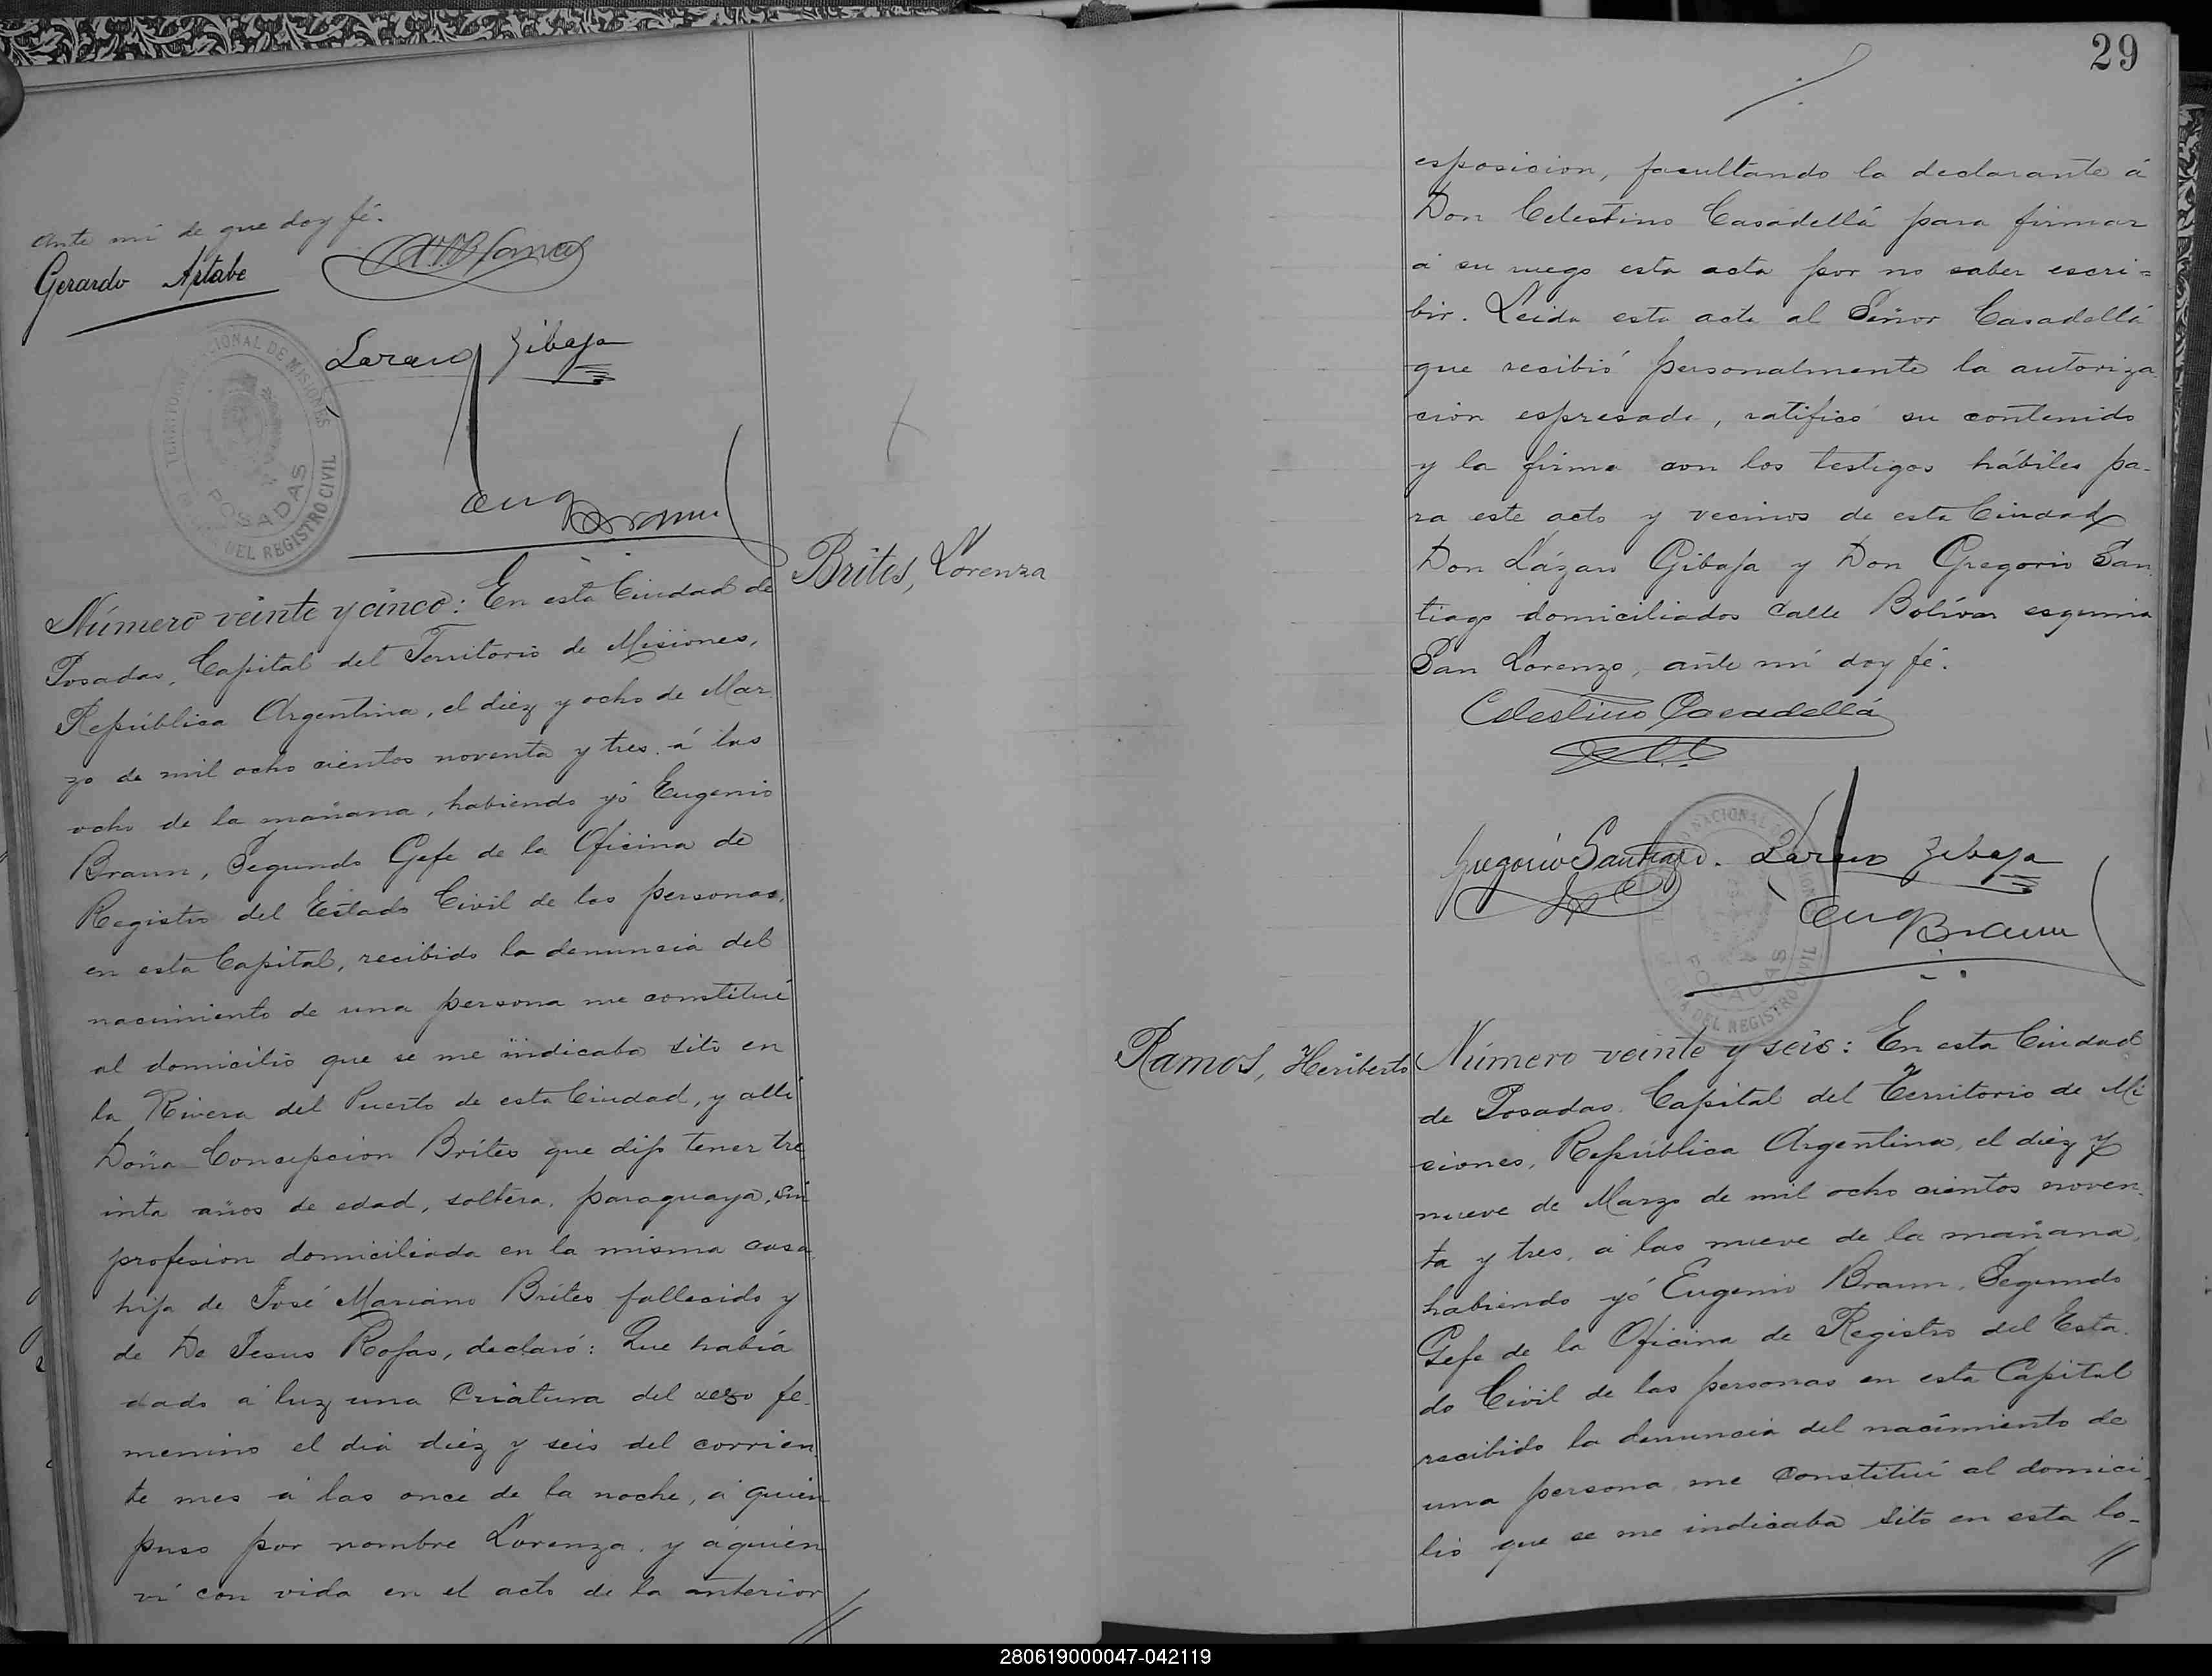 ante mi de que doy fé.
Gerardo Artabe
Lazaro Gibaja
TERRITORIO NACIONAL DE MISIONES
POSADAS
DEL REGISTRO CIVIL
Eug Braun
Brites, Lorenza
Número veinte y cinco: En esta Ciudad de
Posadas, Capital del Territorio de Misiones,
República Argentina, el diez y ocho de Mar
zo de mil ocho cientos noventa y tres á las
ocho de la mañana, habiendo yó Eugenio
Braun, Segundo Gefe de la Oficina de
Registro del Estado Civil de las personas,
en esta Capital, recibido la denuncia del
nacimiento de una persona me constituí
al domicilio que se me indicaba sito en
la Rivera del Puerto de esta Ciudad, y allí
Doña Concepcion Brites que dijo tener tre
inta años de edad, soltera, paraguaya, sin
profesion domiciliada en la misma casa
hija de José Mariano Brites fallecido y
de Da Jesus Rojas, declaró: Que había
dado á luz una Criatura del sexo fe-
menino el dia diez y seis del corrien
te mes á las once de la noche, á quien
puso por nombre Lorenza, y á quien
ví con vida en el acto de la anterior
29
esposicion, facultando la declarante á
Don Celestino Casadellá para firmar
á su ruego esta acta por no saber escri=
bir. Leida esta acta al Señor Casadellá
que recibió personalmente la autoriza
cion espresada, ratificó su contenido
y la firma con los testigos hábiles pa-
ra este acto y vecinos de esta Ciudad
Don Lázaro Gibaja y Don Gregorio San
tiago domiciliados Calle Bolívar esquina
San Lorenzo, ante mí doy fé.
Celestino Casadellá
Gregorio Santiago. Lazaro Gibaja
Eug Braun
NACIONAL
POSADAS
DEL REGISTRO CIVIL
Ramos, Heriberto
Número veinte y seis: En esta Ciudad
de Posadas, Capital del Territorio de Mi
ciones, República Argentina, el diez y
nueve de Marzo de mil ocho cientos noven-
ta y tres, á las nueve de la mañana,
habiendo yó Eugenio Braun, Segundo
Gefe de la Oficina de Registro del Esta-
do Civil de las personas en esta Capital
recibido la denuncia del nacimiento de
una persona me Constituí al domici-
lio que se me indicaba sito en esta lo-
280619000047-042119